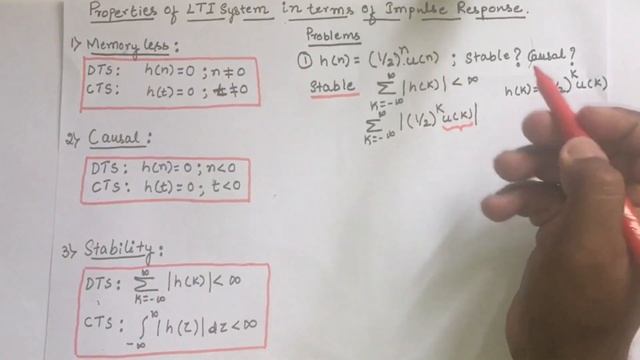 Properties of LTI System in terms of Impulse Response.
1) Memory less:
DTS: h(n)=0 ; n≠0
CTS: h(t)=0 ; t≠0
2) Causal:
DTS: h(n)=0 ; n<0
CTS: h(t)=0 ; t<0
3) Stability:
DTS: ∞ Σ K=-∞ |h(K)| < ∞
CTS: ∫ ∞ -∞ |h(τ)| dτ < ∞
Problems
① h(n) = (1/2)ⁿ u(n) ; Stable? Causal?
Stable ∞ Σ K=-∞ |h(K)| < ∞
h(K)= /2)ᴷ u(K)
∞ Σ K=-∞ |(1/2)ᴷ u(K)|